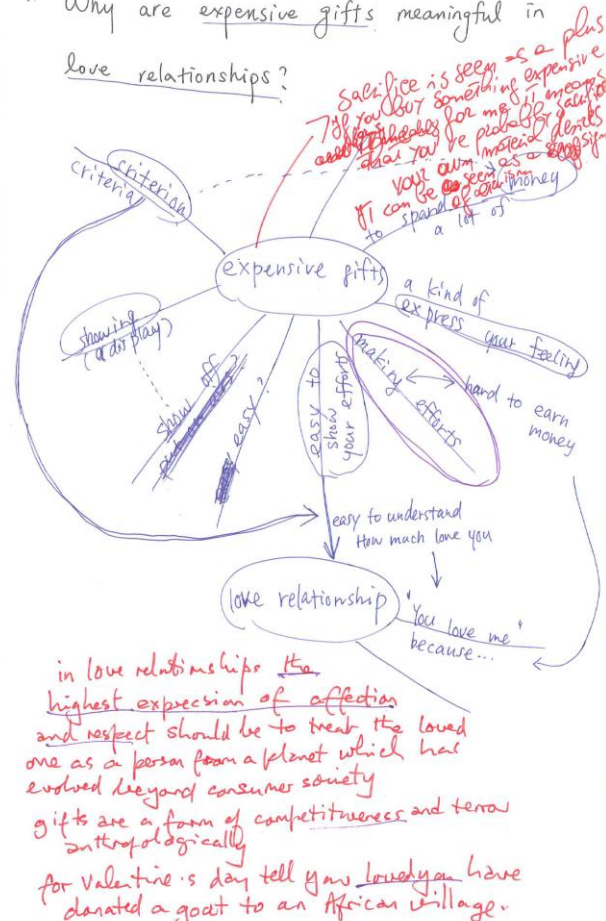 Why are expensive gifts meaningful in
love relationships?
Sacrifice is seem as a plus
If you buy something expensive
for me it means
that you've probably sacrifice
your own material desires
It can be seem as a sign
of
criterion
criteria
to spand
a lot of
money
expensive gifts
a kind of
express your feeling
showing
(a display)
show off?
easy?
easy to
show
your efforts
making
efforts
hard to earn
money
easy to understand
How much love you
love relationship
"You love me"
because...
in love relationships the
highest expression of affection
and respect should be to treat the loved
one as a person from a planet which has
evolved beyond consumer society
gifts are a form of competitiveness and terror
anthropologically
for Valentine's day tell your loved you have
donated a goat to an African village.